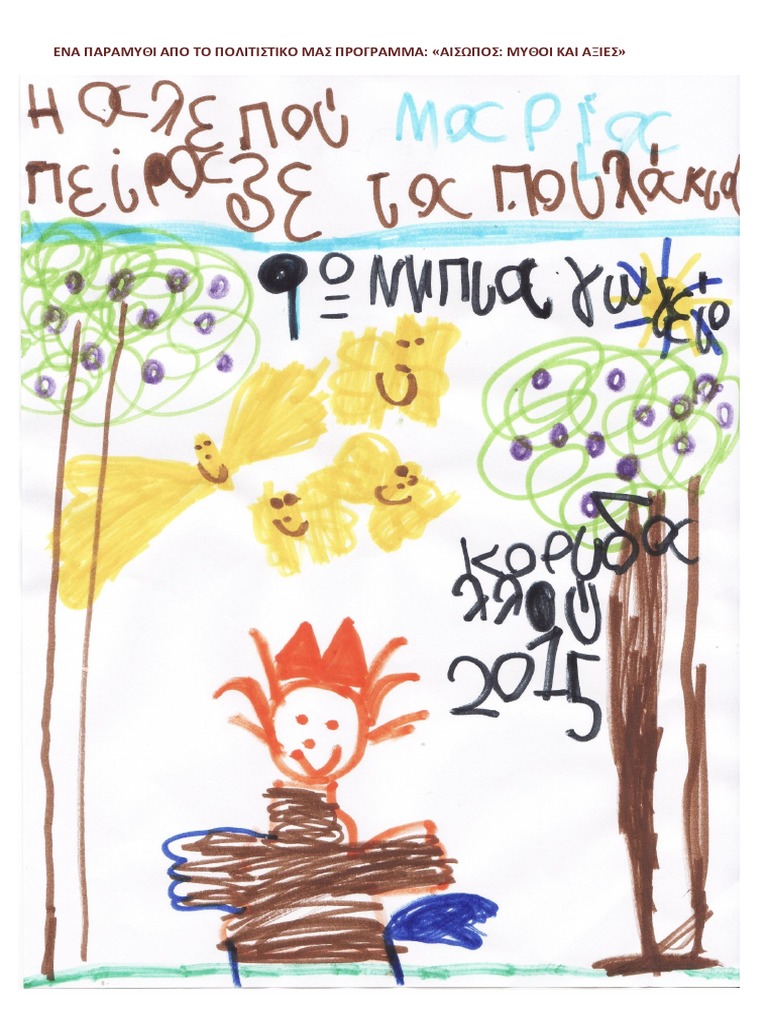 ΕΝΑ ΠΑΡΑΜΥΘΙ ΑΠΟ ΤΟ ΠΟΛΙΤΙΣΤΙΚΟ ΜΑΣ ΠΡΟΓΡΑΜΜΑ: «ΑΙΣΩΠΟΣ: ΜΥΘΟΙ ΚΑΙ ΑΞΙΕΣ»
Η αλεπού Μαρία
πείραζε τα πουλάκια
9ο Νηπιαγωγείο
κορυδα
λλού
2015